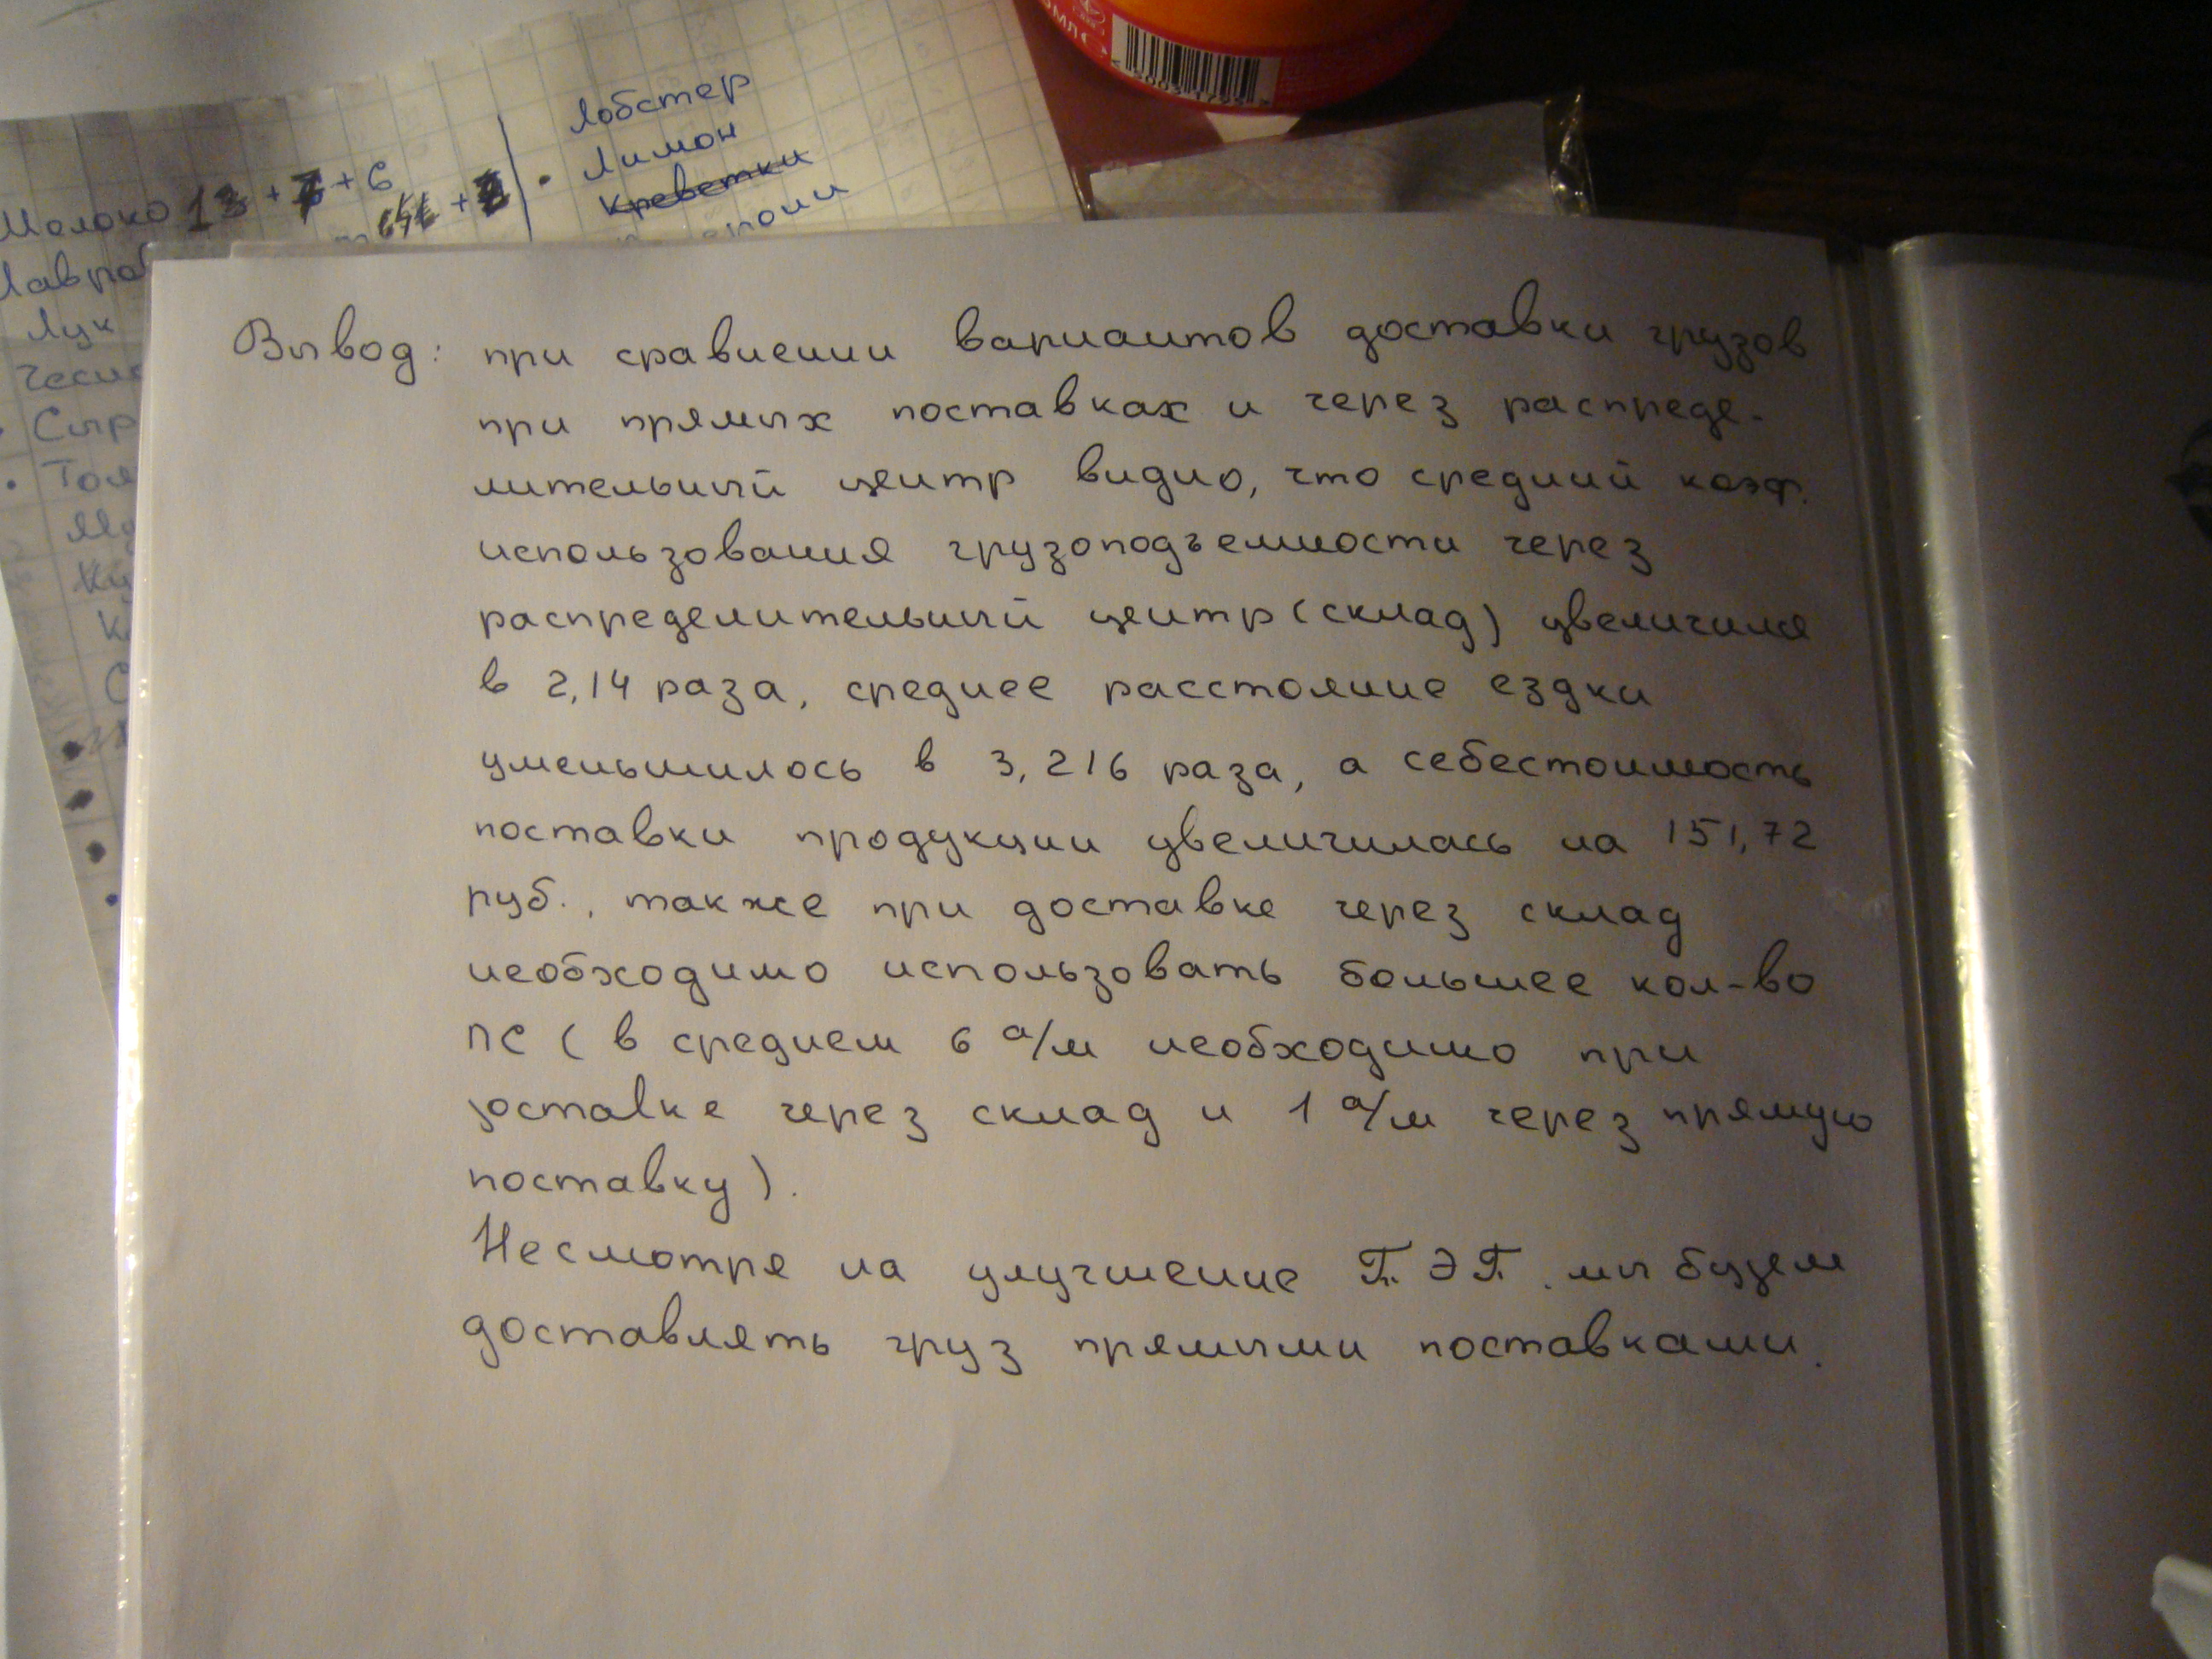 Лобстер
Лимон
Креветки
Молоко 13 + 7 + 6
Лук
Сыр
Вывод: при сравнении вариантов доставки грузов
при прямых поставках и через распреде-
лительный центр видно, что средний коэф.
использования грузоподъемности через
распределительный центр (склад) увеличился
в 2,14 раза, среднее расстояние ездки
уменьшилось в 3,216 раза, а себестоимость
поставки продукции увеличилась на 151,72
руб., также при доставке через склад
необходимо использовать большее кол-во
ПС (в среднем 6 а/м необходимо при
доставке через склад и 1 а/м через прямую
поставку).
Несмотря на улучшение ТЭП, мы будем
доставлять груз прямыми поставками.